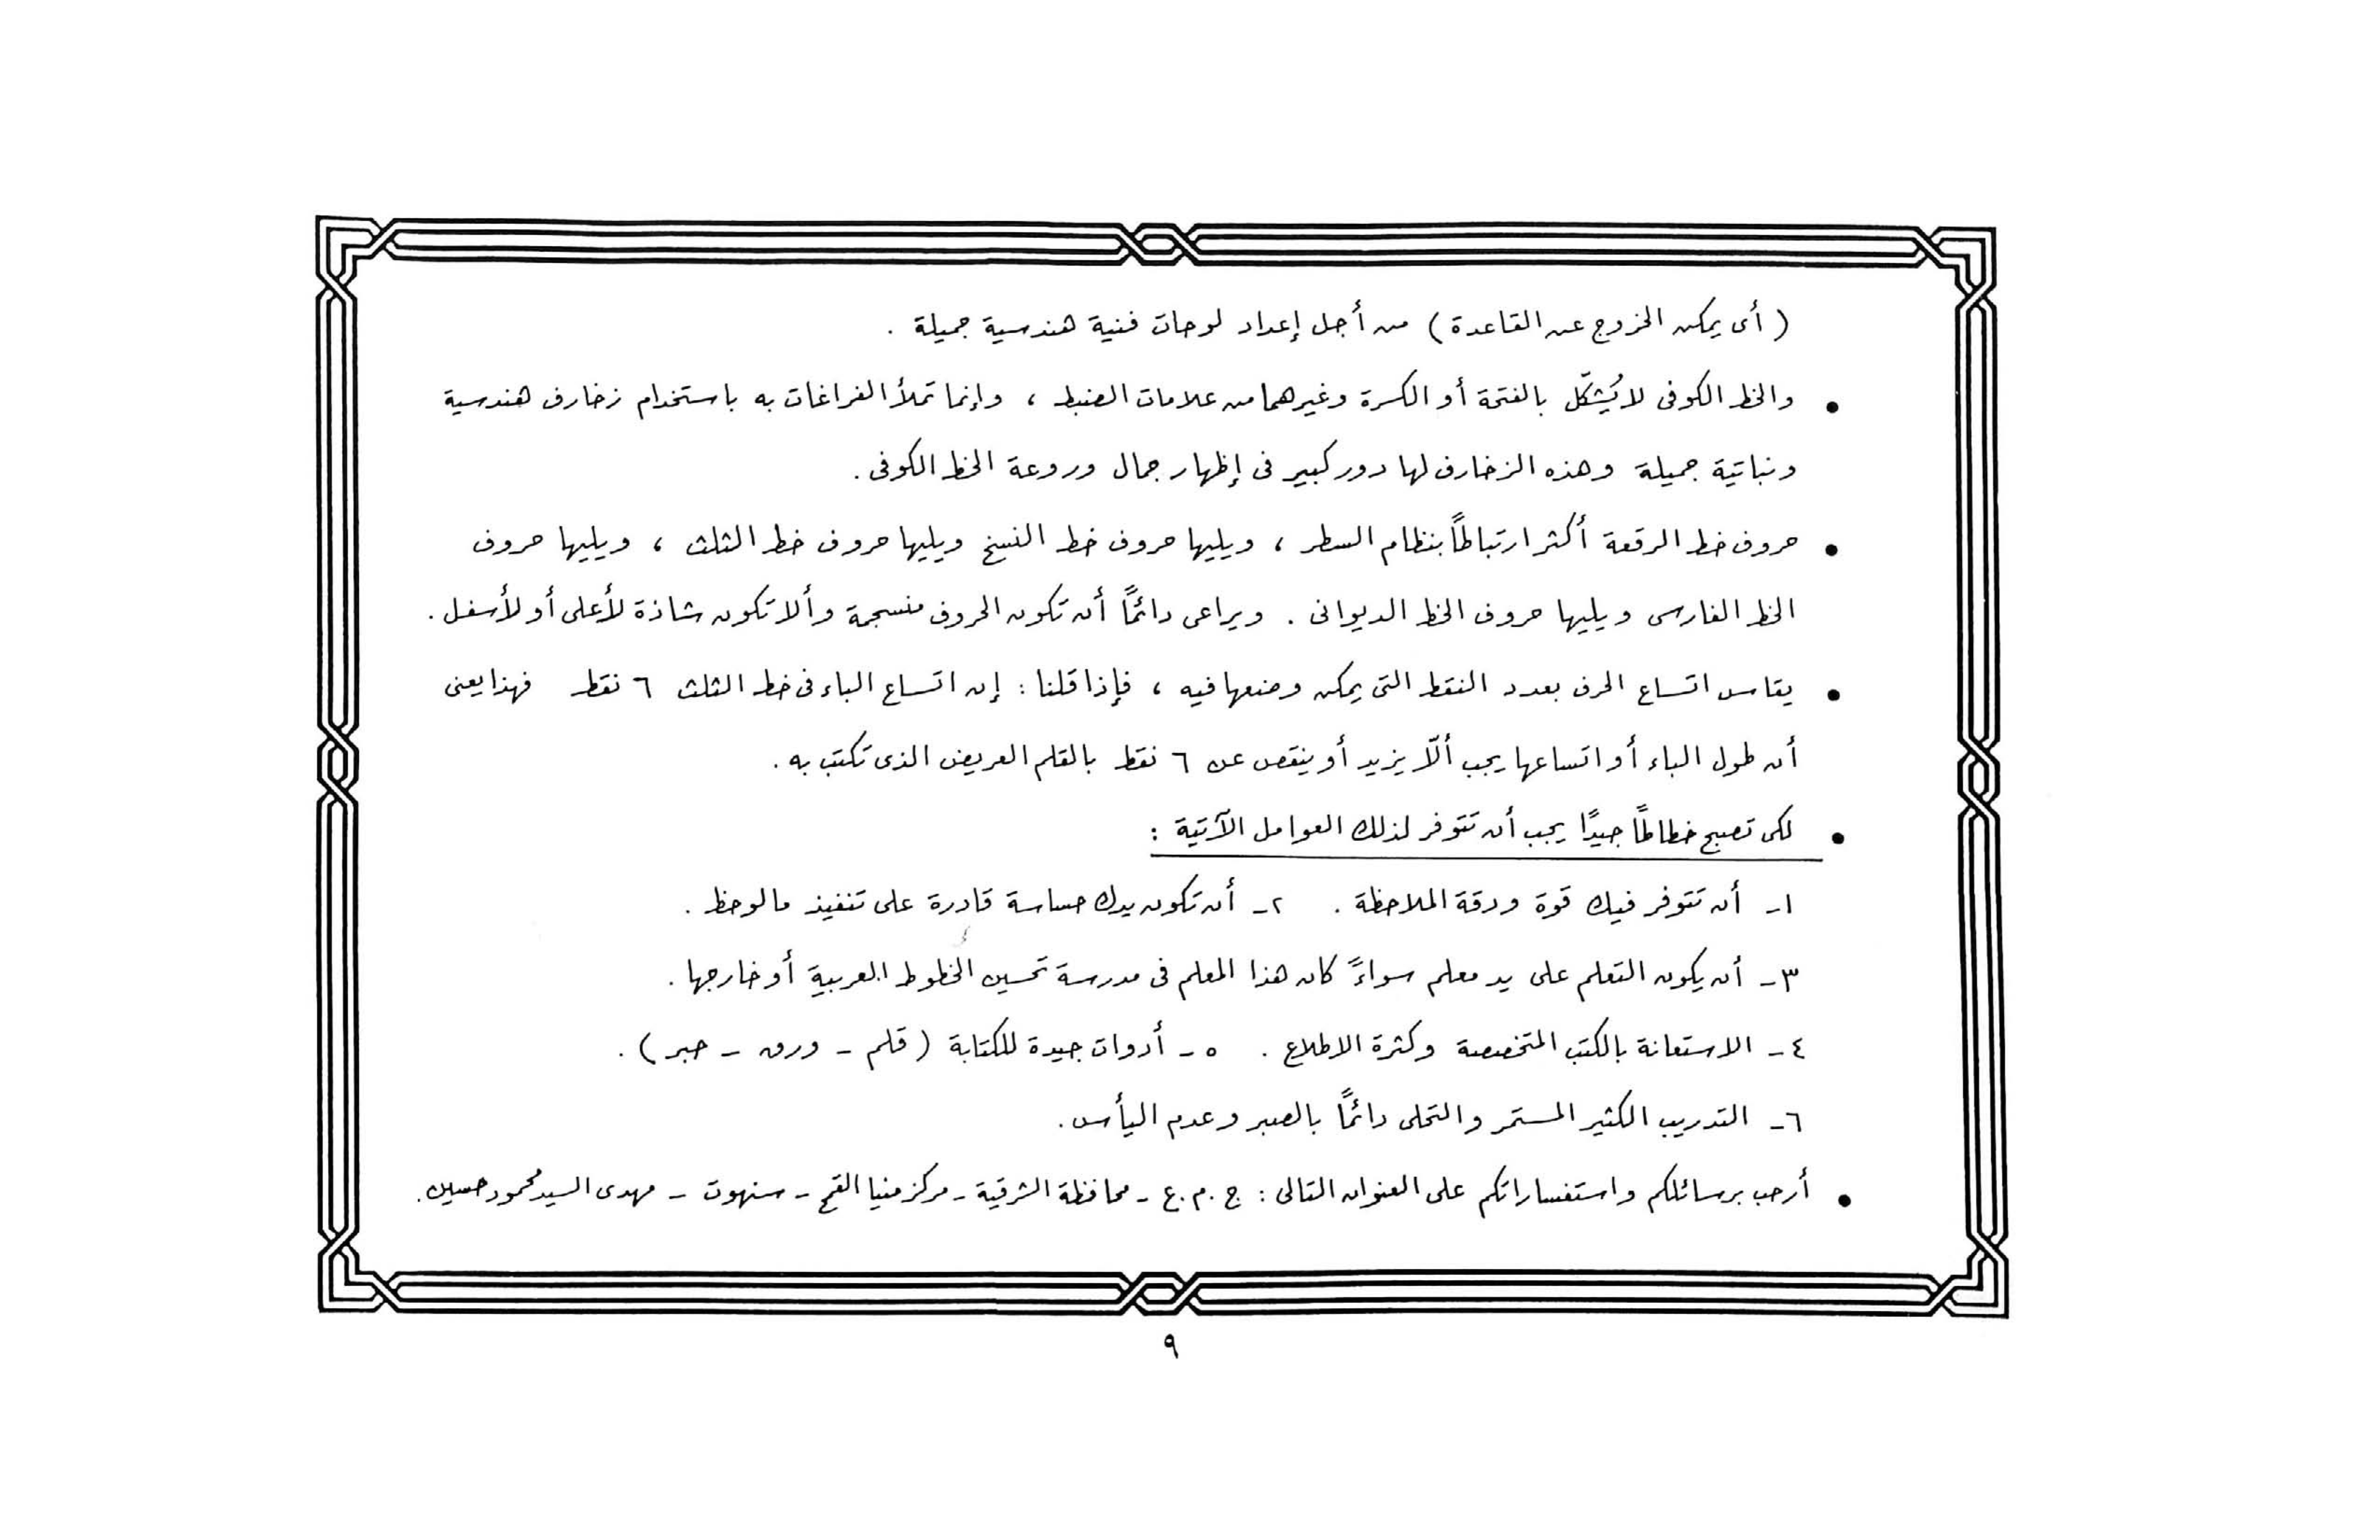 ( أى يمكن الخروج عن القاعدة ) من أجل إعداد لوحات فنية هندسية جميلة .
• والخط الكوفى لا يُشكّل بالفتحة أو الكسرة وغيرهما من علامات الضبط ، وإنما تملأ الفراغات به باستخدام زخارف هندسية
ونباتية جميلة وهذه الزخارف لها دور كبير فى إظهار جمال وروعة الخط الكوفى .
• حروف خط الرقعة أكثر ارتباطاً بنظام السطر ، ويليها حروف خط النسخ ويليها حروف خط الثلث ، ويليها حروف
الخط الفارسى ويليها حروف الخط الديوانى . ويراعى دائماً أن تكون الحروف منسجمة وألا تكون شاذة لأعلى أو لأسفل .
• يقاس اتساع الحرف بعدد النقط التى يمكن وضعها فيه ، فإذا قلنا : إن اتساع الباء فى خط الثلث ٦ نقط فهذا يعنى
أن طول الباء أو اتساعها يجب ألّا يزيد أو ينقص عن ٦ نقط بالقلم العريض الذى تكتب به .
• لكى تصبح خطاطاً جيدًا يجب أن تتوفر لذلك العوامل الآتية :
١- أن تتوفر فيك قوة ودقة الملاحظة . ٢- أن تكون يدك حساسة قادرة على تنفيذ ما لوحظ .
٣- أن يكون التعلم على يد معلم سواءً كان هذا المعلم فى مدرسة تحسين الخطوط العربية أو خارجها .
٤- الاستعانة بالكتب المتخصصة وكثرة الاطلاع . ٥- أدوات جيدة للكتابة ( قلم - ورق - حبر ) .
٦- التدريب الكثير المستمر والتحلى دائماً بالصبر وعدم اليأس .
• أرحب برسائلكم واستفساراتكم على العنوان التالى : ج . م . ع - محافظة الشرقية - مركز منيا القمح - سنهوت - مهدى السيد محمود حسين .
٩